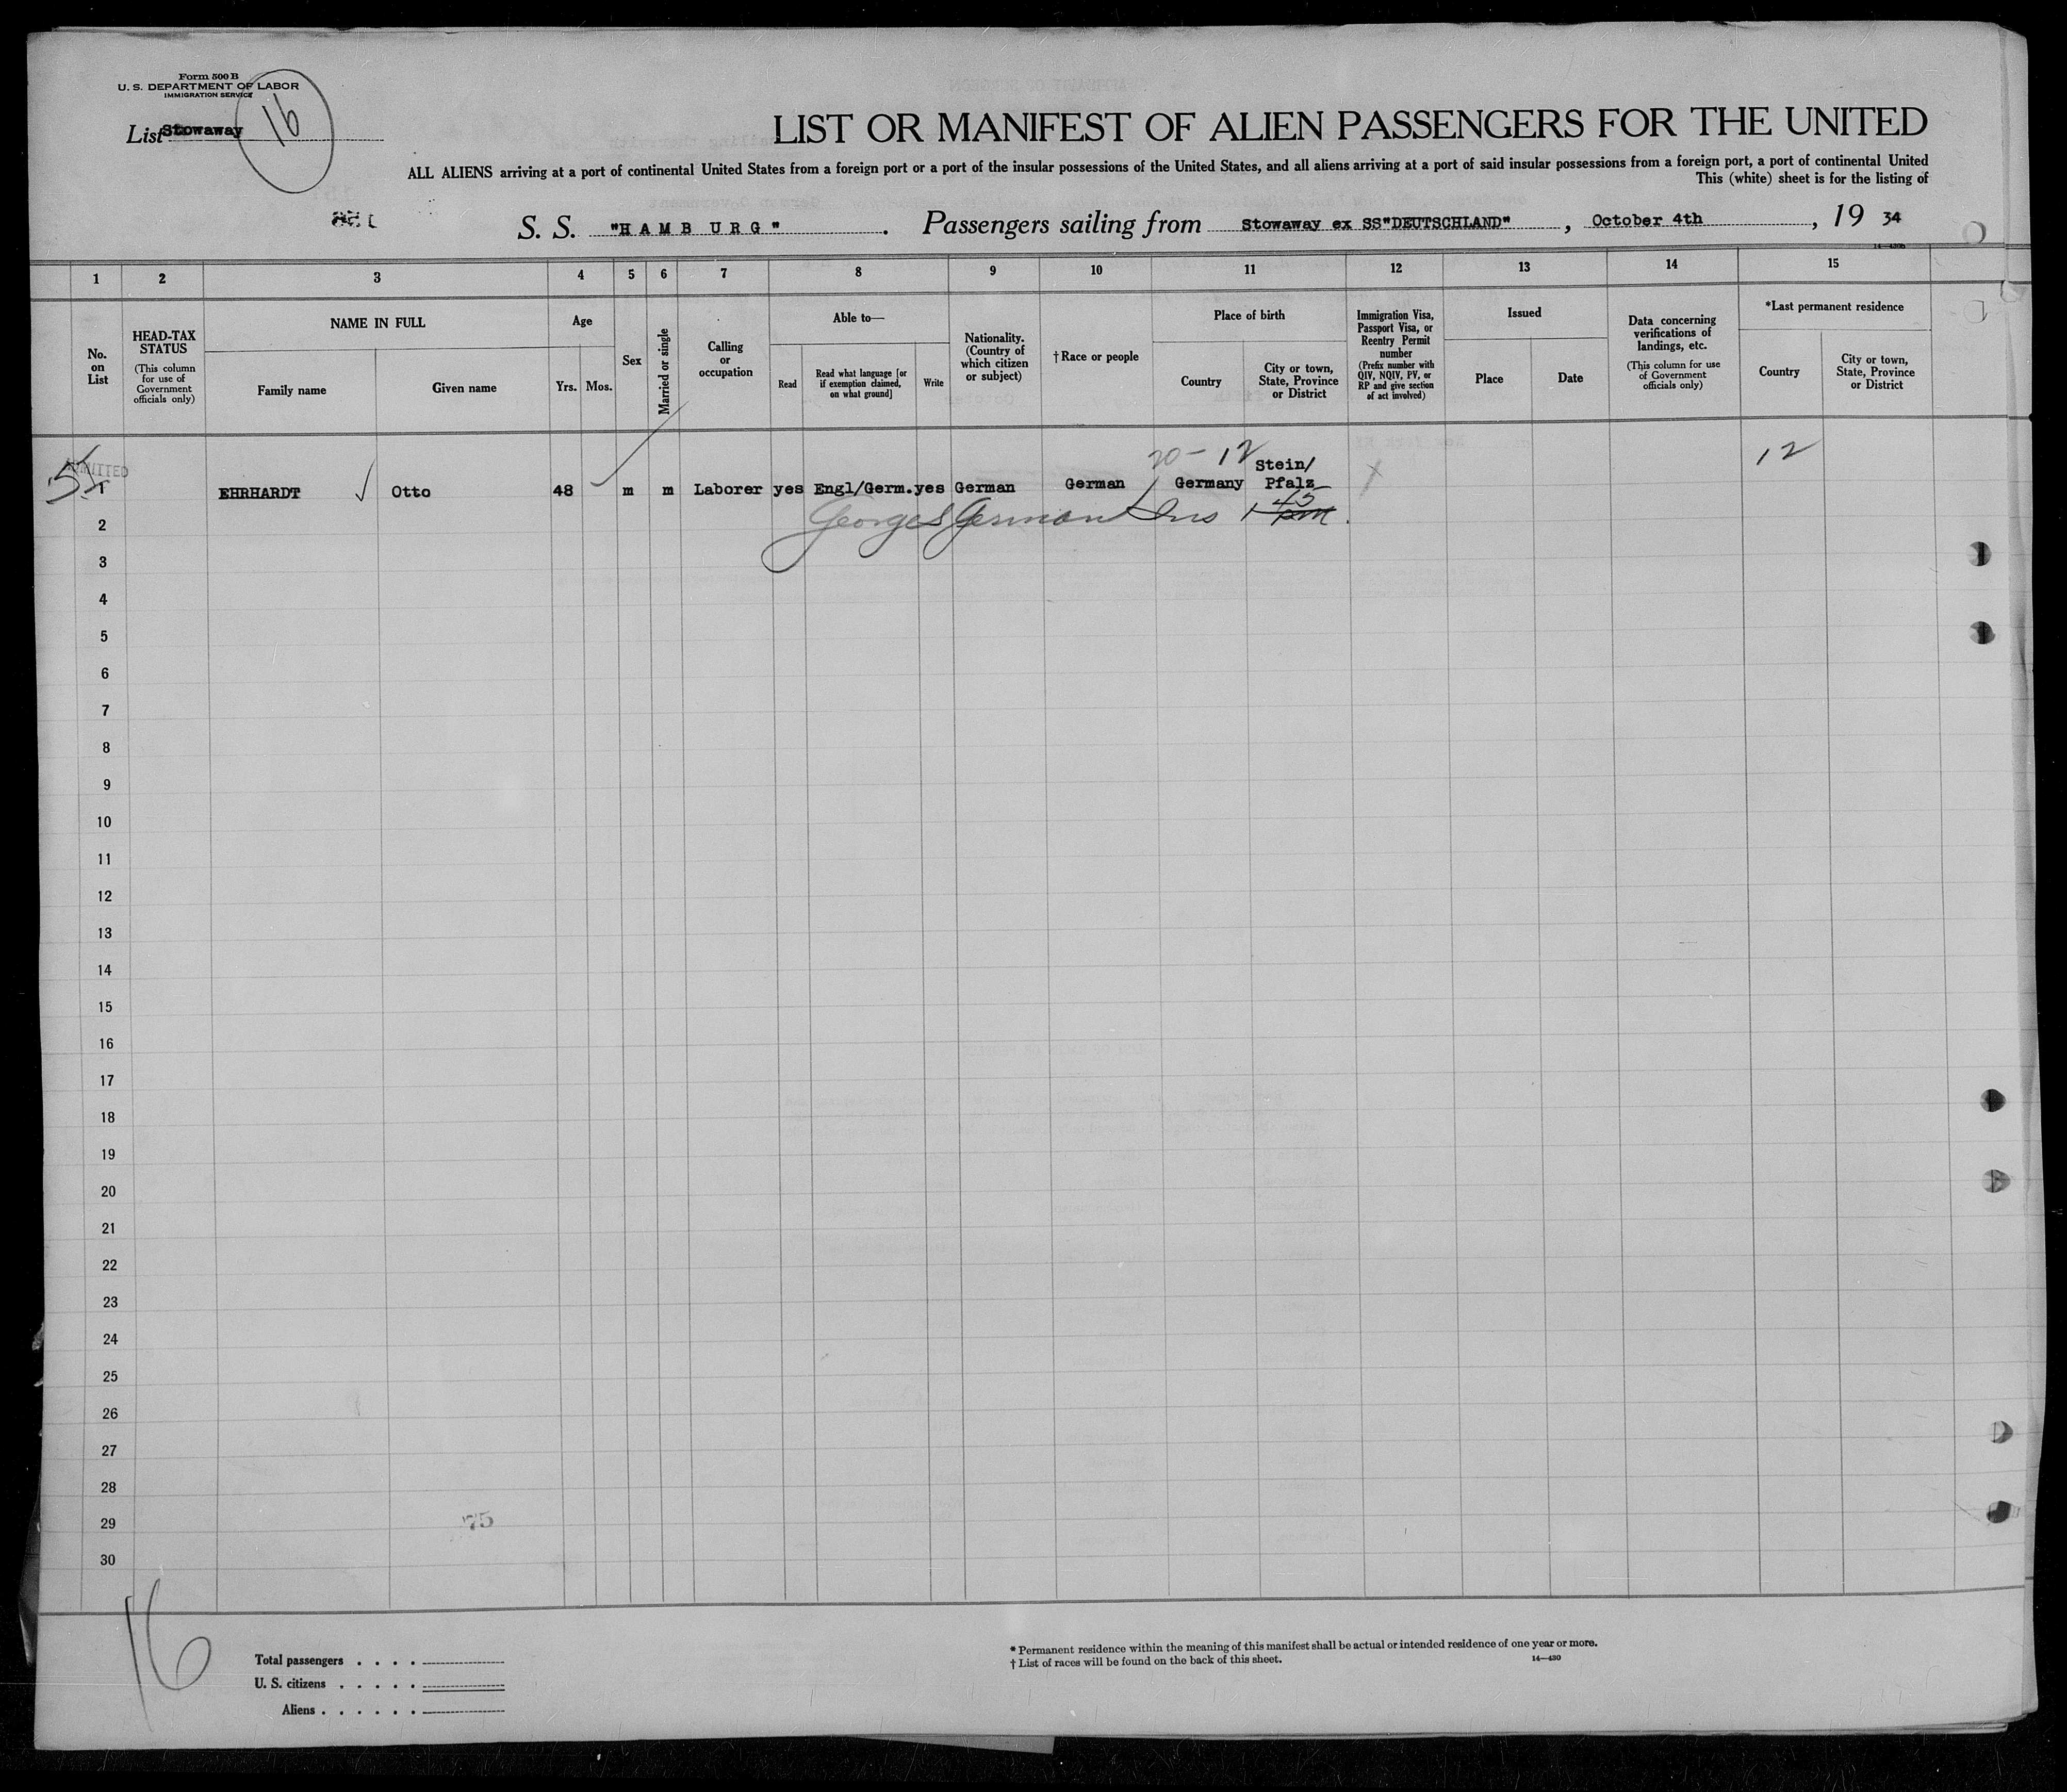 Form 500 B
U. S. DEPARTMENT OF LABOR
IMMIGRATION SERVICE
List Stowaway 16
LIST OR MANIFEST OF ALIEN PASSENGERS FOR THE UNITED
ALL ALIENS arriving at a port of continental United States from a foreign port or a port of the insular possessions of the United States, and all aliens arriving at a port of said insular possessions from a foreign port, a port of continental United
This (white) sheet is for the listing of
S. S. "H A M B U R G". Passengers sailing from Stowaway ex SS"DEUTSCHLAND", October 4th, 19 34
14—430b
1 2 3 4 5 6 7 8 9 10 11 12 13 14 15
No. on List
HEAD-TAX STATUS
(This column for use of Government officials only)
NAME IN FULL
Family name
Given name
Age
Yrs. Mos.
Sex
Married or single
Calling or occupation
Able to—
Read
Read what language [or if exemption claimed, on what ground]
Write
Nationality. (Country of which citizen or subject)
†Race or people
Place of birth
Country
City or town, State, Province or District
Immigration Visa, Passport Visa, or Reentry Permit number
(Prefix number with QIV, NQIV, PV, or RP and give section of act involved)
Issued
Place
Date
Data concerning verifications of landings, etc.
(This column for use of Government officials only)
*Last permanent residence
Country
City or town, State, Province or District
20-12
12
ADMITTED
1 EHRHARDT √ Otto 48 m m Laborer yes Engl/Germ. yes German German Germany Stein/ Pfalz X
2 George S German Ins 1 45 pm.
3
4
5
6
7
8
9
10
11
12
13
14
15
16
17
18
19
20
21
22
23
24
25
26
27
28
29
30
75
16
Total passengers . . . .
U. S. citizens . . . . .
Aliens . . . . . .
* Permanent residence within the meaning of this manifest shall be actual or intended residence of one year or more.
† List of races will be found on the back of this sheet.
14—430